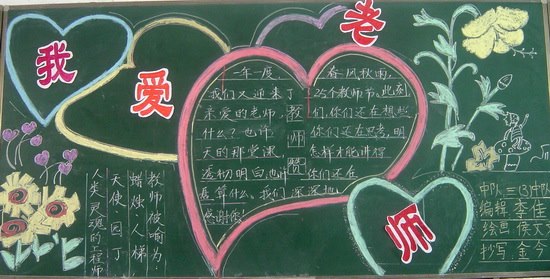 我爱老师
一年一度
我们又迎来了
亲爱的老师,
什么?也许
天的那堂课,
透彻明白,也许
感谢您!
教师赞
春风秋雨,
25个教师节。此刻
们,你们还在想些
你们还在思考,明
怎样才能讲得
们,你们还在
盘算什么。我们深深地
教师被喻为:
蜡烛、人梯
天使、园丁
人类灵魂的工程师
中队 三(3)中队
编辑 李佳
绘画 侯文文
抄写 金今